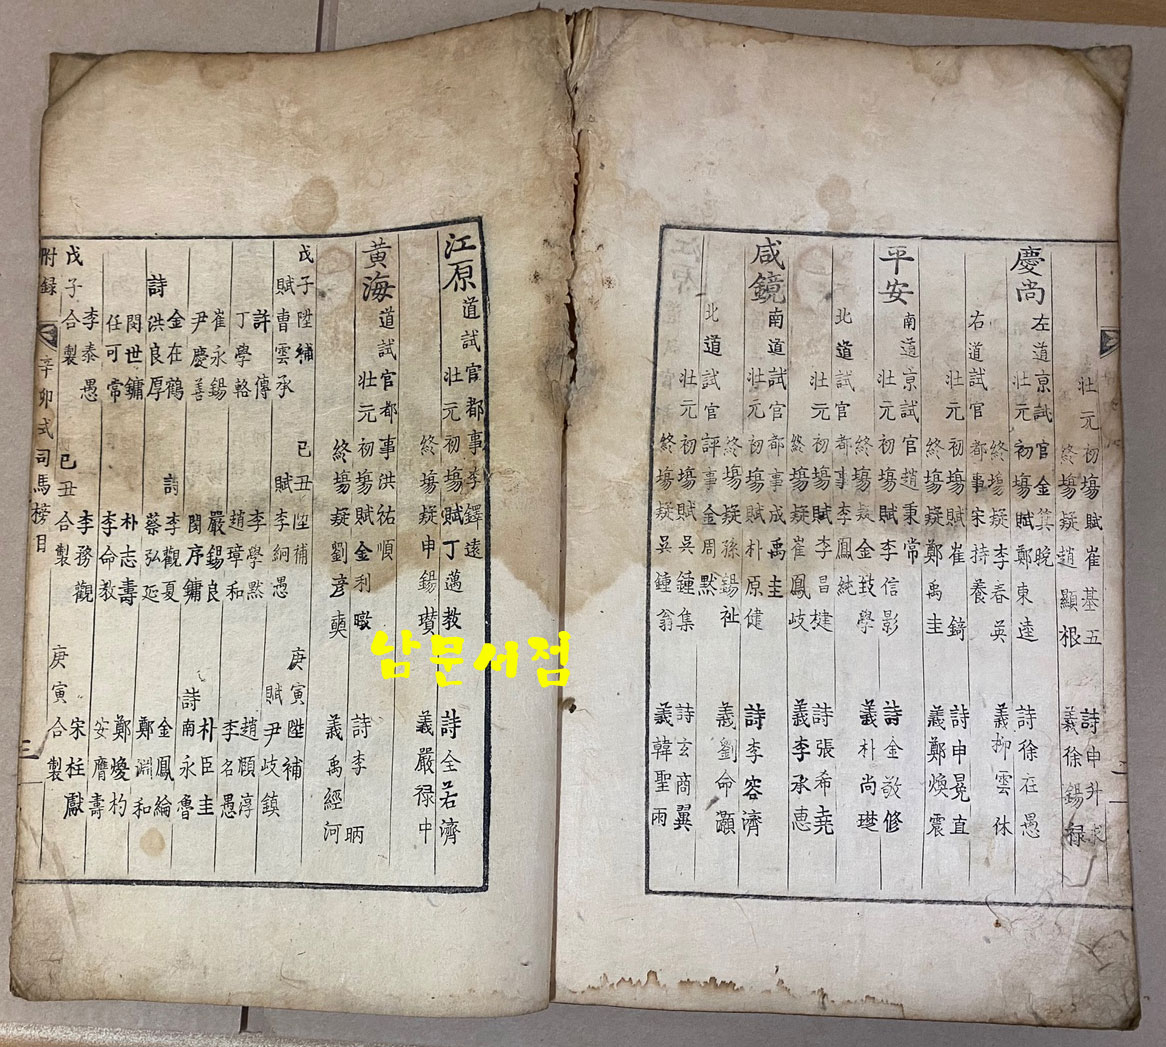 壯元初塲賦崔基五 詩申升求
終塲疑趙顯根 義徐錫祿
慶尙左道京試官金箕晩
壯元初塲賦鄭東逵 詩徐在愚
終塲疑李春英 義柳雲休
右道試官都事宋持養
壯元初塲賦崔錡 詩申冕直
終塲疑鄭禹圭 義鄭煥震
平安南道京試官趙秉常
壯元初塲賦李信影 詩金敬修
終塲疑金致學 義朴尙璡
北道試官都事李鳳純
壯元初塲賦李昌楗 詩張希堯
終塲疑崔鳳岐 義李承惠
咸鏡南道試官都事成禹圭
壯元初塲賦朴原健 詩李容濟
終塲疑孫錫祉 義劉命灝
北道試官評事金周黙
壯元初塲賦吳鍾集 詩玄商翼
終塲疑吳鍾翁 義韓聖雨
江原道試官都事李鐸遠
壯元初塲賦丁邁敎 詩全若濟
終塲疑申錫瓚 義嚴祿中
黃海道試官都事洪祐順
壯元初塲賦金利暾 詩李昞
終塲疑劉彥奭 義禹經河
戊子陞補 己丑陞補 庚寅陞補
賦曹雲承 賦李綗愚 賦尹岐鎭
許傳 李學黙 趙順淳
丁學輅 趙璋和 李名愚
崔永錫 嚴錫良 朴臣圭
尹慶善 閔序鏞 詩南永魯
詩金在鶴 詩李觀夏 金鳳綸
洪良厚 蔡弘延 鄭淵和
閔世鏞 朴志壽 鄭煖杓
任可常 李命敎 安膺壽
李泰愚 李務觀 宋柱獻
戊子合製 己丑合製 庚寅合製
附錄 辛卯式司馬榜目 三
남문서점